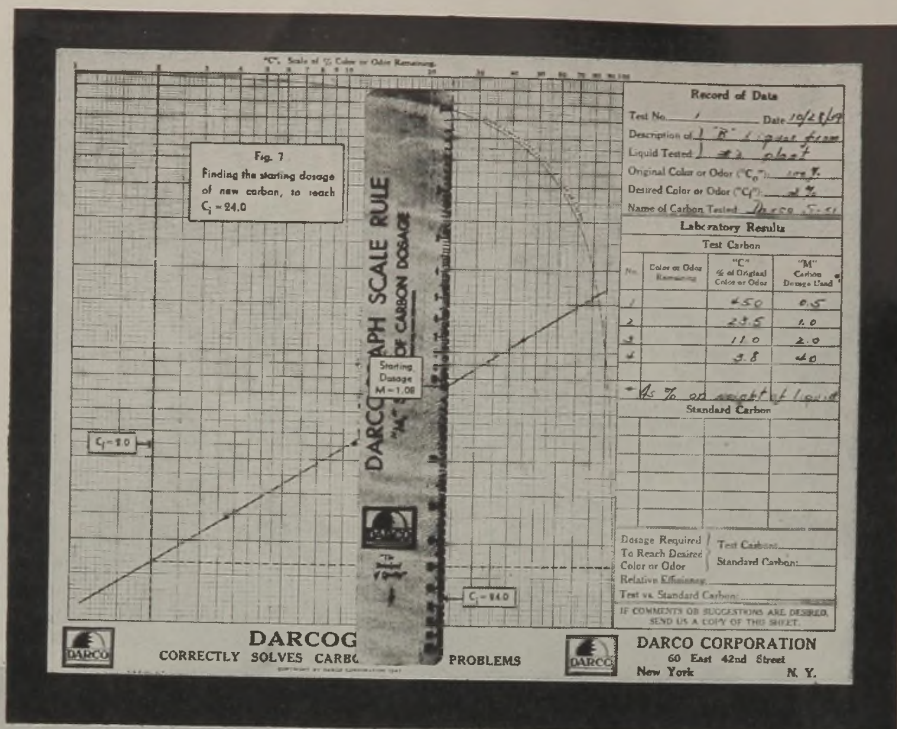 "C", Scale of % Color or Odor Remaining.
1 2 3 4 5 6 7 8 9 10 20 30 40 50 60 70 80 90 100
Fig. 7
Finding the starting dosage
of new carbon, to reach
Cᵢ = 24.0
DARCOGRAPH SCALE RULE
"M," OF CARBON DOSAGE
Starting
Dosage
M = 1.08
C = 2.0
DARCO
"The
Standard
of Quality"
C = 24.0
Record of Data
Test No. 1 Date 10/28/
Description of "B" liquor from
Liquid Tested #2 plant
Original Color or Odor ("Cₒ"): 100 %
Desired Color or Odor ("Cf") 2 %
Name of Carbon Tested Darco S-51
Laboratory Results
Test Carbon
No. Color or Odor Remaining "C" % of Original Color or Odor "M" Carbon Dosage Used *
1 45.0 0.5
2 23.5 1.0
3 11.0 2.0
4 3.8 4.0
* As % on weight of liquid
Standard Carbon
Dosage Required
To Reach Desired
Color or Odor
Test Carbon:
Standard Carbon:
Relative Efficiency
Test vs. Standard Carbon:
IF COMMENTS OR SUGGESTIONS ARE DESIRED,
SEND US A COPY OF THIS SHEET.
DARCO
DARCOG
CORRECTLY SOLVES CARBO PROBLEMS
DARCO
DARCO CORPORATION
60 East 42nd Street
New York N. Y.